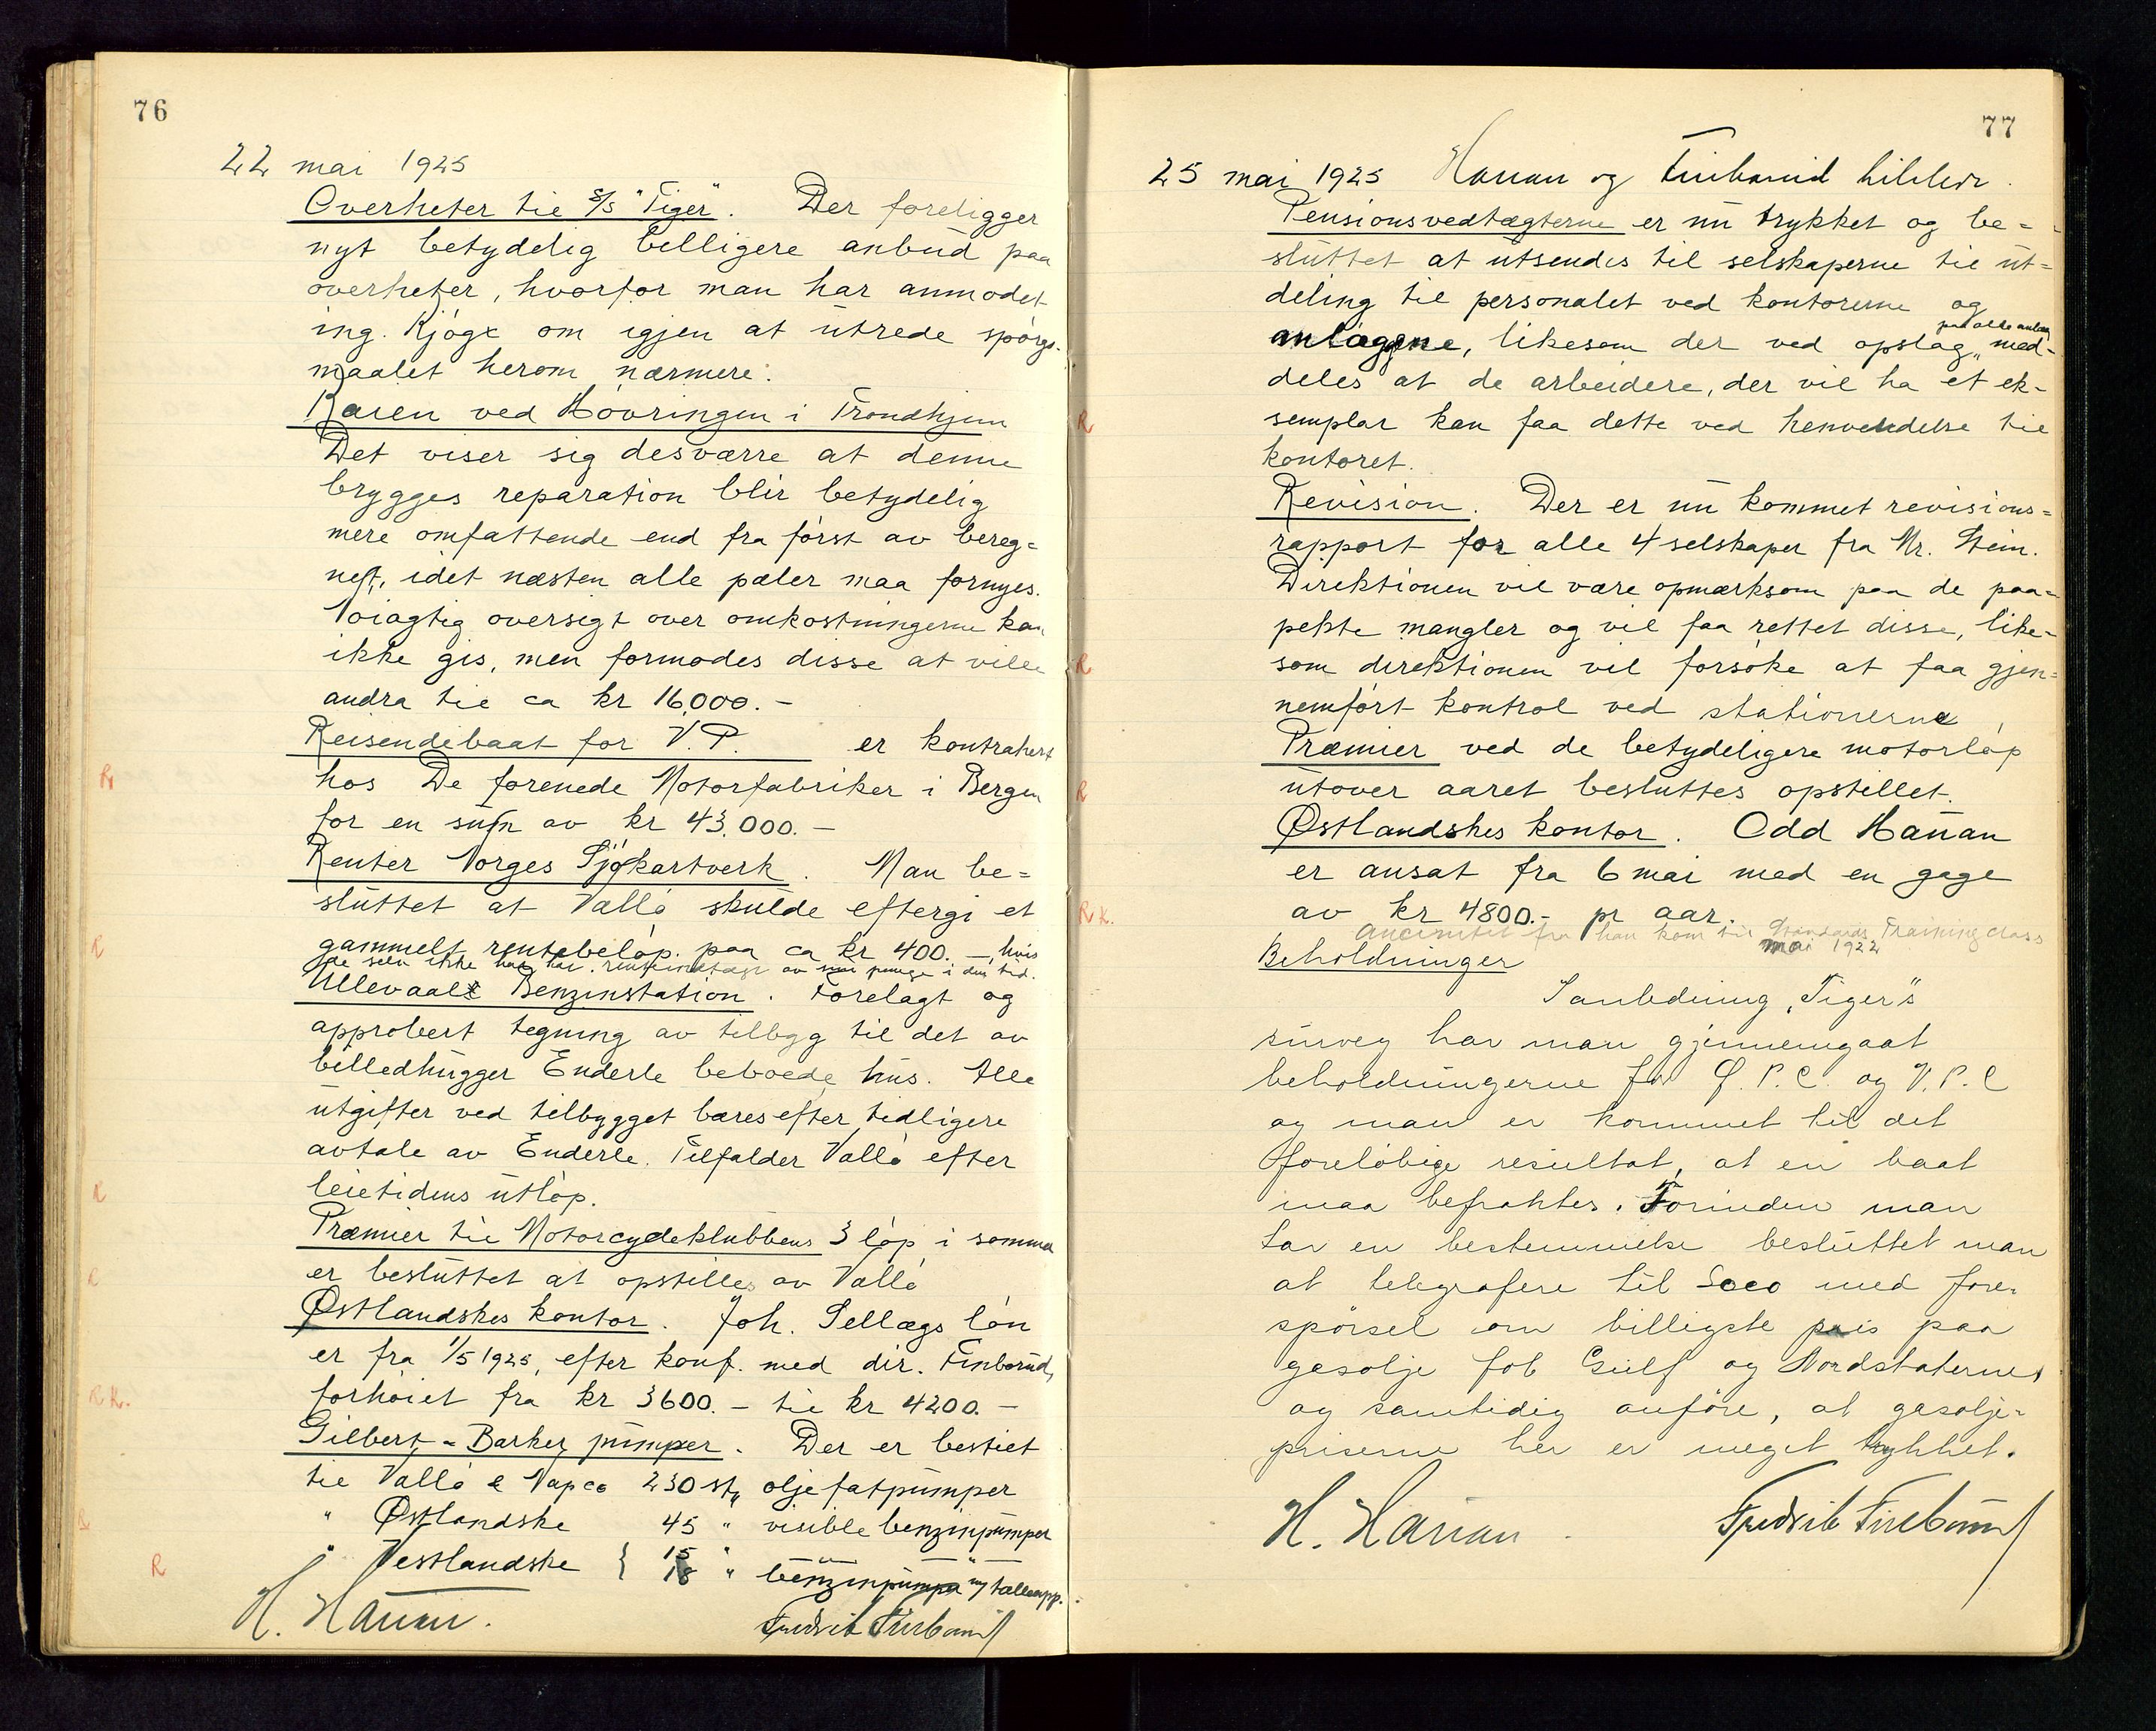 76
22 mai 1925
Overheter til S/S "Tiger". Der foreligger
nyt betydelig billigere anbud paa
overheter, hvorfor man har anmodet
ing. Kjøge om igjen at utrede spørgs-
maalet herom nærmere.
Kaien ved Høvringen i Trondhjem
Det viser sig desværre at denne
brygges reparation blir betydelig
mere omfattende end fra først av bereg=
net, idet næsten alle pæler maa fornyes.
Nøiagtig oversigt over omkostningerne kan
ikke gis, men formodes disse at ville
andra til ca kr 16,000.-
Reisendebaat for V.P. er kontrahert
hos De forenede Motorfabriker i Bergen
for en sum av kr 43.000.-
Renter Norges Sjøkartverk. Man be=
sluttet at Vallø skulde eftergi et
gammelt rentebeløp paa ca kr 400.-, hvis
de selv ikke har hat renteindtægt av penge i den tid.
Ullevaals Benzinstation. Forelagt og
approbert tegning av tilbygg til det av
billedhugger Enderle beboede hus. Alle
utgifter ved tilbygget bæres efter tidligere
avtale av Enderle. Tilfalder Vallø efter
leietidens utløp.
Præmier til Motorcycleklubbens 3 løp i sommer
er besluttet at opstilles av Vallø
Østlandskes kontor. Joh. Sellægs løn
er fra 1/5 1925, efter konf. med dir. Finborud,
forhøiet fra kr 3600.- til kr 4200.-
Gilbert - Barker pumper. Der er bestilt
til Vallø & Vapco 230 st, oljefatpumper
" Østlandske 45 " visible benzinpumper
" Vestlandske { 15 " " "
18 " benzinpumpe m/ tælleapp.
H. Hanan. Fredrik Finborud
77
25 mai 1925 Hanan og Finborud tilstede.
Pensionsvedtægterne er nu trykket og be=
sluttet at utsendes til selskaperne til ut=
deling til personalet ved kontorerne og
paa alle anlæg
anlæggene, likesom der ved opslag med-
deles at de arbeidere, der vil ha et ek-
semplar kan faa dette ved henvendelse til
kontoret.
Revision. Der er nu kommet revisions=
rapport for alle 4 selskaper fra Mr. Stein.
Direktionen vil være opmærksom paa de paa=
pekte mangler og vil faa rettet disse, like=
som direktionen vil forsøke at faa gjen=
nemført kontrol ved stationerne
Præmier ved de betydeligere motorløp
utover aaret besluttes opstillet.
Østlandskes kontor. Odd Hanan
er ansat fra 6 mai med en gage
av kr 4800.- pr aar.
Ancienitet fra han kom til Standards Training class
mai 1922
Beholdninger
I anledning "Tiger"s
survey har man gjennemgaat
beholdningerne for Ø.P.C. og V.P.C
og man er kommet til det
foreløbige resultat, at en baat
maa befraktes. Forinden man
tar en bestemmelse besluttet man
at telegrafere til Soco med fore-
spørsel om billigste pris paa
gasolje fob Gulf og Nordstaternes
og samtidig anføre, at gasolje-
priserne her er meget trykket.
H. Hanan Fredrik Finborud